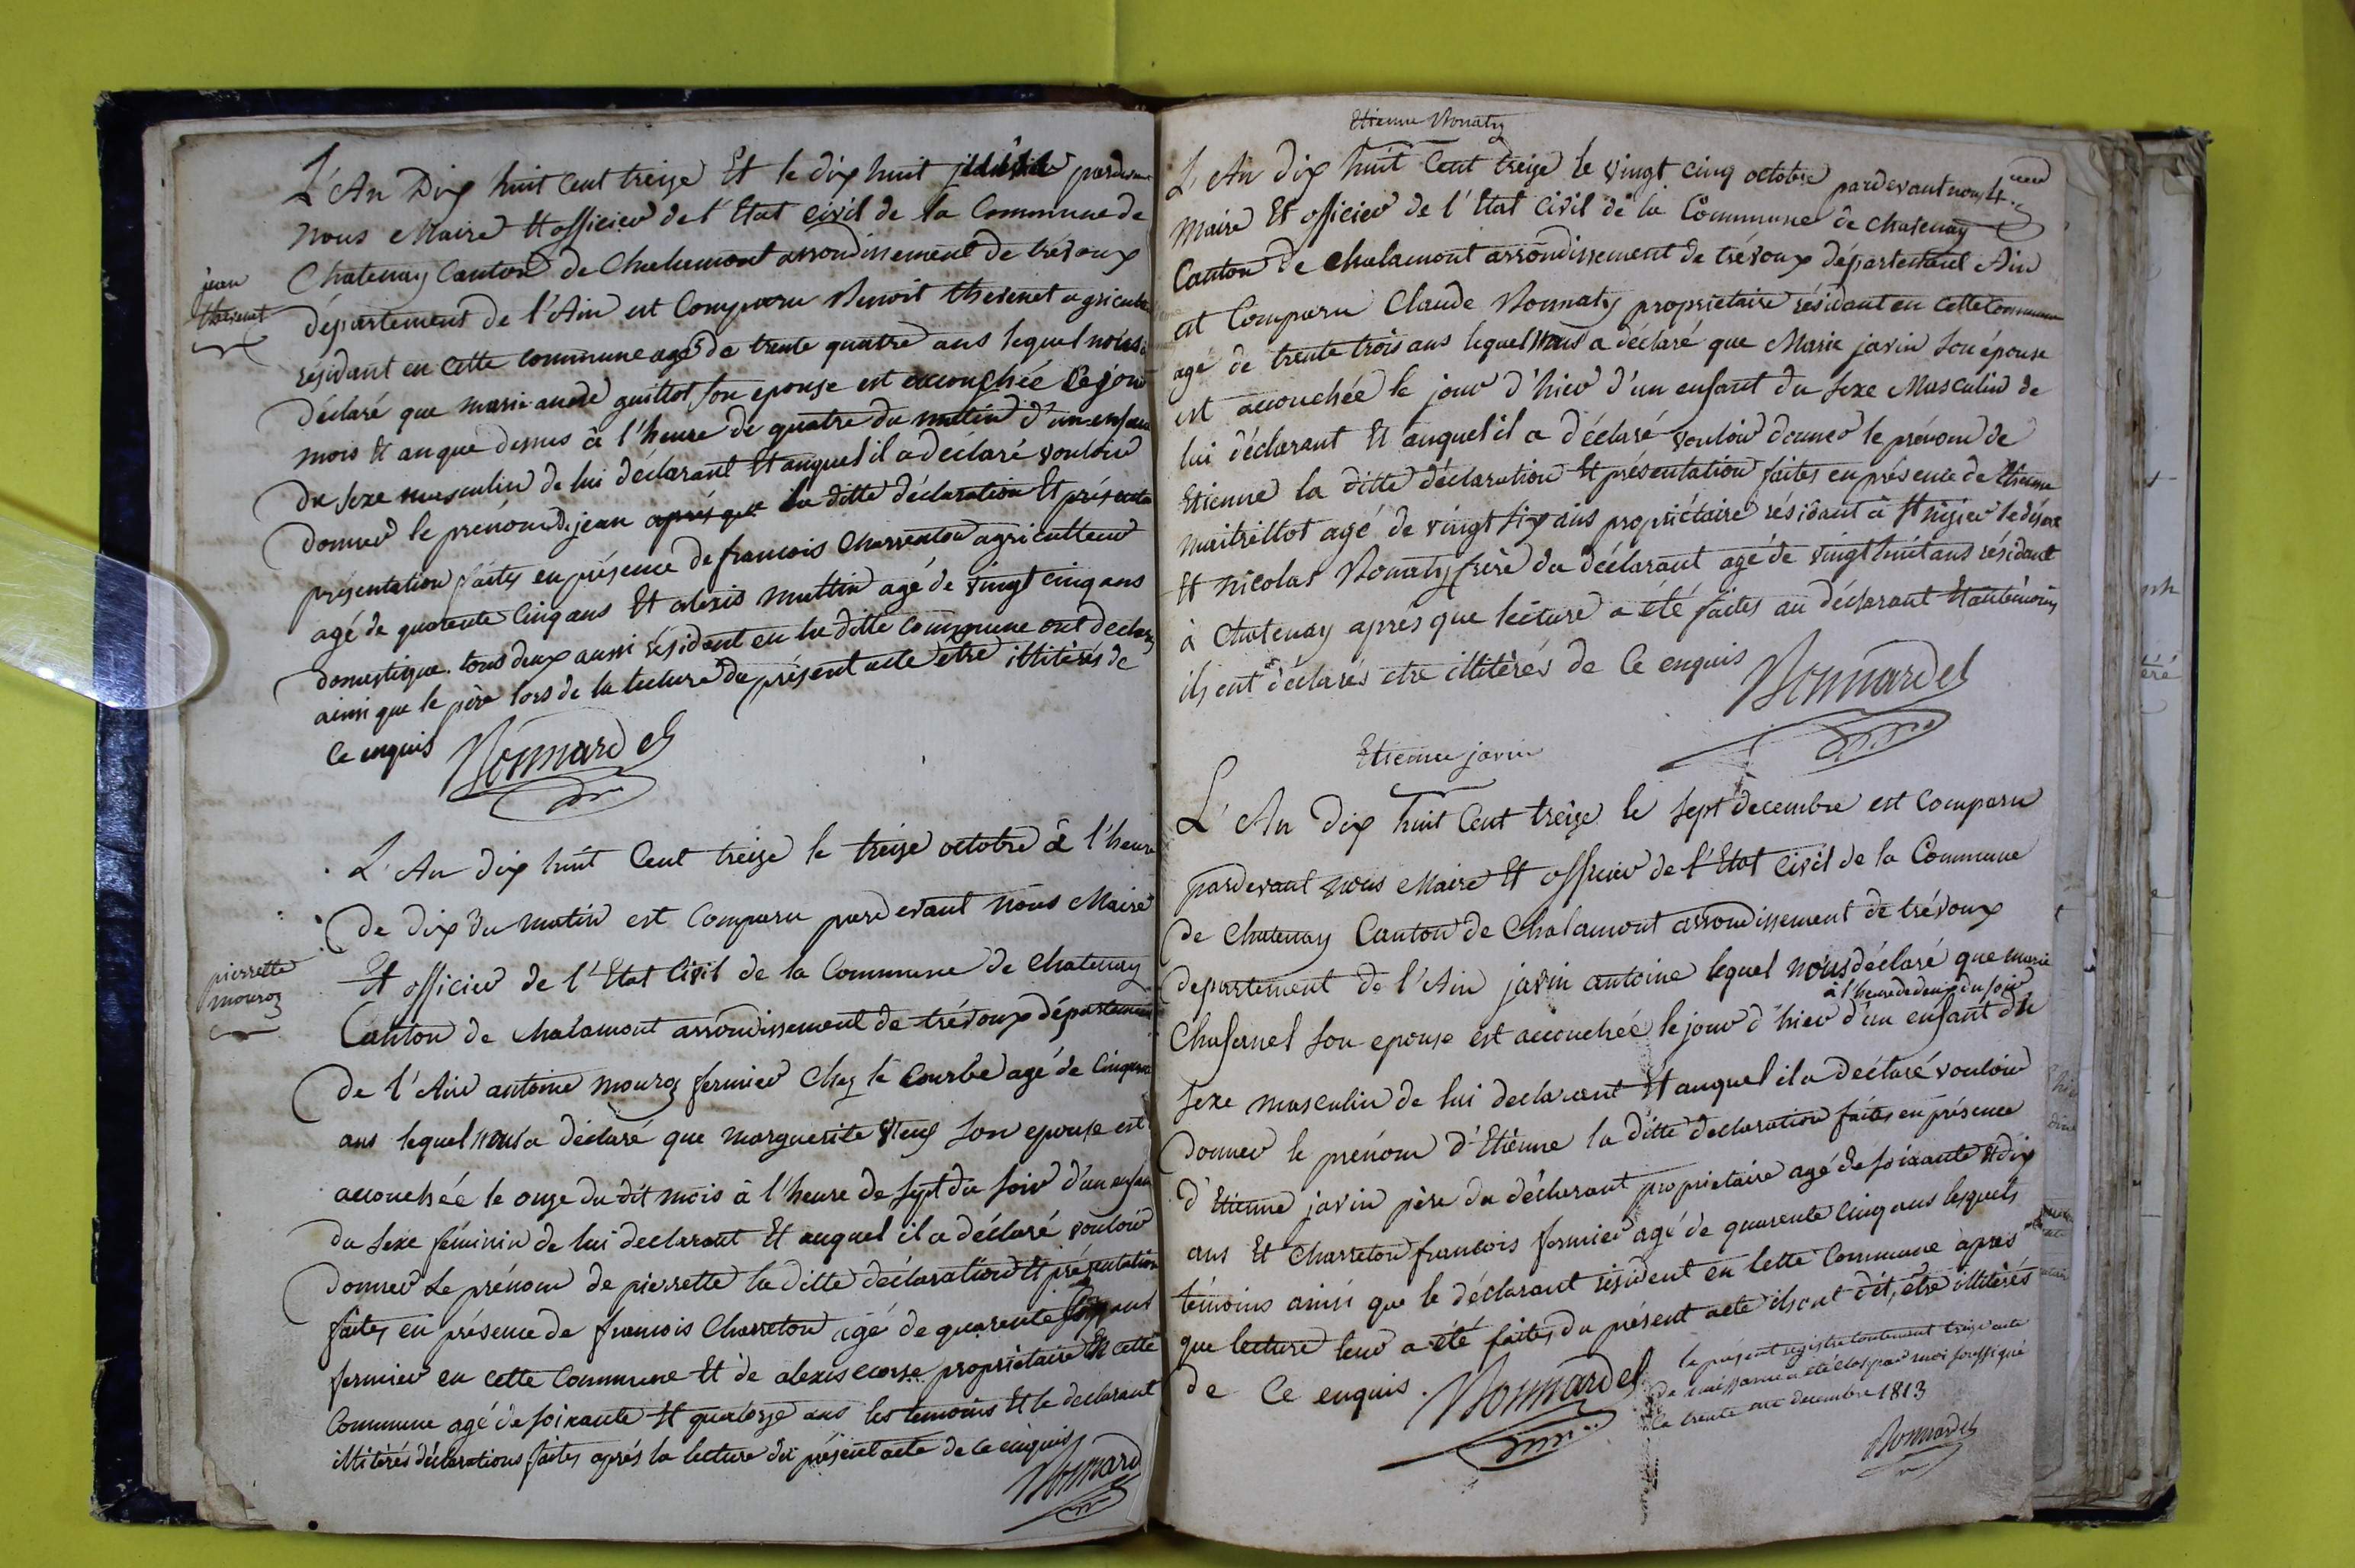 L'An Dix huit Cent treize Et le dix huit pardevant
nous Maire Et officier de l'Etat Civil de la Commune de
Chatenay Canton de Chalamont arrondissement de trévoux
jean
thevenet
département de l'Ain est Comparu Benoit thevenet agriculteur
résidant en cette commune agé de trente quatre ans lequel nous a
déclaré que marie andré guillot son epouse est accouchée Ce jour
mois et an que dessus à l'heure de quatre du matin d'un enfant
du sexe masculin de lui déclarant Et auquel il a déclaré vouloir
donner le prénom de jean après que la ditte déclaration Et présenta
présentation faites en présence de francois Charreton agriculteur
agé de quarente Cinq ans Et alexis muttin agé de vingt cinq ans
domestique tous deux aussi résident en la ditte Commune ont declaré
ainsi que le père lors de la lecture du présent acte etre illitérés de
Ce enquis Bonnardel
L'An dix huit Cent treize le treize octobre à l'heure
de dix du matin est Comparu pardevant nous Maire
pierrette
mouroz
Et officier de l'Etat Civil de la Commune de Chatenay
Canton de Chalamont arrondissement de trévoux département
de l'Ain antoine mouroz fermier Chez le Courbe agé de Cinquante
ans lequel nous a déclaré que marguerite son epouse est
accouchée le onze du dit mois à l'heure de sept du soir d'un enfant
du sexe féminin de lui declarant Et auquel il a déclaré vouloir
donner Le prénom de pierrette la ditte déclaration Et présentation
faites en présence de francois Charreton agé de quarente ans
fermier en cette Commune Et de alexis propriétaire En cette
Commune agé de soixante Et quatorze ans les temoins Et le declarant
illitérés déclarations faites après la lecture du présent acte de ce enquis
Bonnard
Etienne Bonaty
L'An dix huit Cent treize le vingt cinq octobre pardevant nous
Maire Et officier de l'Etat Civil de la Commune de Chatenay
Canton de Chalamont arrondissement de trévoux département Ain
est Comparu Claude Bonnaty proprietaire résidant en cette Commune
agé de trente trois ans lequel nous a déclaré que Marie javin son épouse
est accouchée le jour d'hier d'un enfant du sexe Masculin de
lui déclarant Et auquel il a déclaré vouloir donner le prénom de
Etienne la ditte déclaration Et présentation faites en présence de Etienne
maitrillot agé de vingt six ans propriétaire résidant à St nizier le désert
Et nicolas Bonaty frère du déclarant agé de vingt huit ans résidant
à Chatenay après que lecture a été faites au déclarant Et aux témoins
ils ont déclarés etre illitérés de Ce enquis Bonnardel
Etienne javin
L'An dix huit Cent treize le sept decembre est Comparu
pardevant nous Maire Et officier de l'Etat Civil de la Commune
de Chatenay Canton de Chalamont arrondissement de trévoux
departement de l'Ain javin antoine lequel nous déclaré que marie
à l'heure de deux du soir
Chafornel son epouse est accouchée le jour d'hier d'un enfant du
sexe masculin de lui declarant Et auquel il a déclaré vouloir
donner le prénom d'Etienne la ditte declaration faites en présence
d'Etienne javin père du déclarant proprietaire agé de soixante Et dix
ans Et Charreton francois fermier agé de quarente Cinq ans lesquels
témoins ainsi que le déclarant résident en cette Commune après
que lecture leur a été faites du présent acte ils ont dit être illitérés
de Ce enquis. Bonnardel
le présent registre Contenant treize acte
de naissance a été clos par moi soussigné
le trente un decembre 1813
Bonnardel